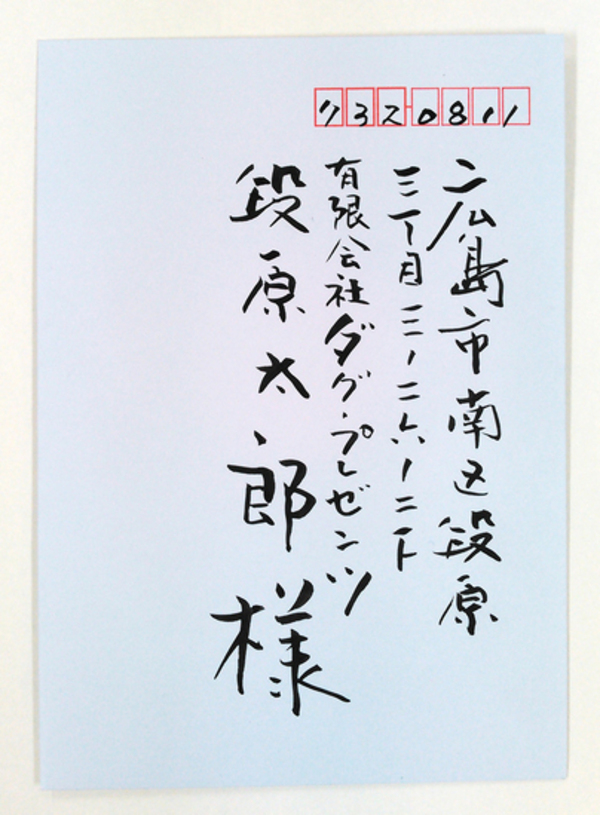 7320811
広島市南区段原
三丁目三ー二六ー二下
有限会社ダグ・プレゼンツ
段原太郎様